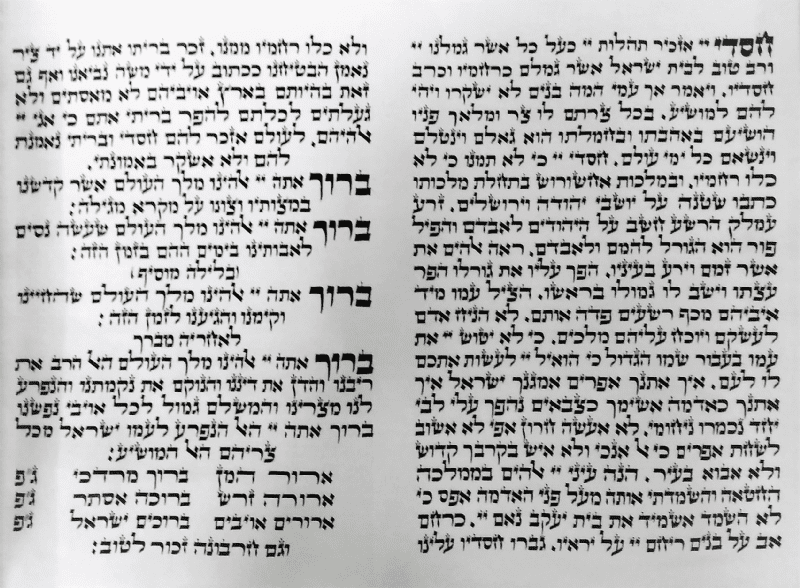 חסדי יי אזכיר תהלות יי כעל כל אשר גמלנו יי
ורב טוב לבית ישראל אשר גמלם כרחמיו וכרב
חסדיו. ויאמר אך עמי המה בנים לא ישקרו ויהי
להם למושיע. בכל צרתם לו צר ומלאך פניו
הושיעם באהבתו ובחמלתו הוא גאלם וינטלם
וינשאם כל ימי עולם. חסדי יי כי לא תמנו כי לא
כלו רחמיו. ובמלכות אחשורוש בתחלת מלכותו
כתבו שטנה על יושבי יהודה וירושלים. זרע
עמלק הרשע חשב על היהודים לאבדם והפיל
פור הוא הגורל להמם ולאבדם. ראה אלהים את
אשר זמם וירע בעיניו. הפך עליו את גורלו הפר
עצתו וישב לו גמולו בראשו. הציל עמו מיד
איביהם מכף רשעים פדה אותם. לא הניח אדם
לעשקם ויוכח עליהם מלכים. כי לא יטוש יי את
עמו בעבור שמו הגדול כי הואיל יי לעשות אתכם
לו לעם. איך אתנך אפרים אמגנך ישראל איך
אתנך כאדמה אשימך כצבאים נהפך עלי לבי
יחד נכמרו ניחומי. לא אעשה חרון אפי לא אשוב
לשחת אפרים כי אל אנכי ולא איש בקרבך קדוש
ולא אבוא בעיר. הנה עיני יי אלהים בממלכה
החטאה והשמדתי אותה מעל פני האדמה אפס כי
לא השמד אשמיד את בית יעקב נאם יי. כרחם
אב על בנים ריחם יי על יראיו. גברו חסדיו עלינו
ולא כלו רחמיו ממנו. זכר בריתו אתנו על יד ציר
נאמן הבטיחנו ככתוב על ידי משה נביאנו ואף גם
זאת בהיותם בארץ אויביהם לא מאסתים ולא
געלתים לכלתם להפר בריתי אתם כי אני יי
אלהיהם. לעולם אזכר להם חסדי ובריתי נאמנת
להם ולא אשקר באמונתי.
ברוך אתה יי אלהינו מלך העולם אשר קדשנו
במצותיו וצונו על מקרא מגילה:
ברוך אתה יי אלהינו מלך העולם שעשה נסים
לאבותינו בימים ההם בזמן הזה:
(ובלילה מוסיף)
ברוך אתה יי אלהינו מלך העולם שהחיינו
וקימנו והגיענו לזמן הזה:
לאחריה מברך
ברוך אתה יי אלהינו מלך העולם האל הרב את
ריבנו והדן את דיננו והנוקם את נקמתנו והנפרע
לנו מצרינו והמשלם גמול לכל אויבי נפשנו
ברוך אתה יי האל הנפרע לעמו ישראל מכל
צריהם האל המושיע:
ארור המן ברוך מרדכי ג'פ
ארורה זרש ברוכה אסתר ג'פ
ארורים אויבים ברוכים ישראל ג'פ
וגם חרבונה זכור לטוב: